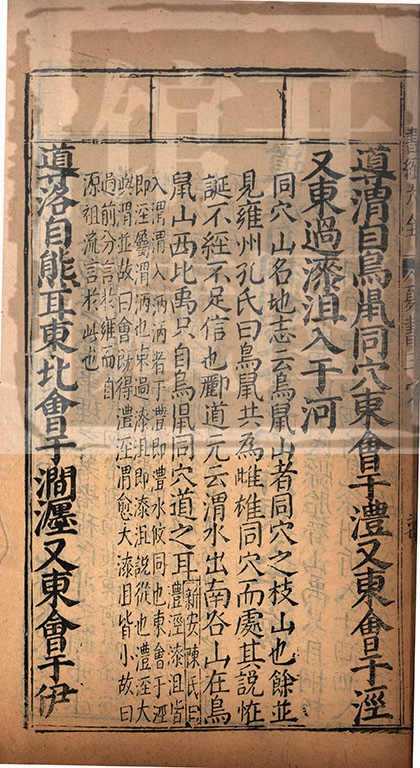 導渭自鳥鼠同穴東會于澧又東會于涇
又東過漆沮入于河
同穴山名地志云鳥鼠山者同穴之枝山也餘並
見雍州孔氏曰鳥鼠共為雌雄同穴而處其說恠
誕不經不足信也酈道元云渭水出南谷山在鳥
鼠山西北禹只自鳥鼠同穴道之耳
新安陳氏曰
澧涇漆沮皆
入渭渭入河東會于澧即澧水攸同也東會于涇
即涇屬渭汭也東過漆沮即漆沮旣從也澧涇大
與渭並故曰會旣得澧涇渭愈大漆沮皆小故曰
過前分言於雍而自
源徂流言於此也
導洛自熊耳東北會于澗瀍又東會于伊